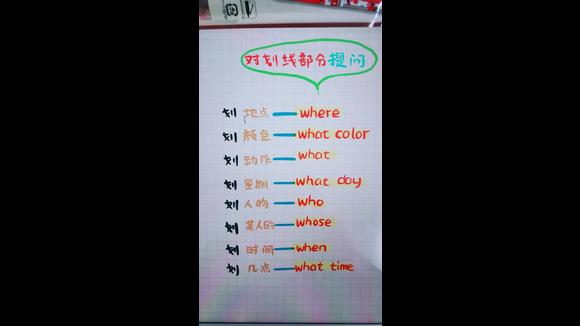 对划线部分提问
划 地点 — where
划 颜色 — what color
划 动作 — what
划 星期 — what day
划 人物 — who
划 某人的 — whose
划 时间 — when
划 几点 — what time